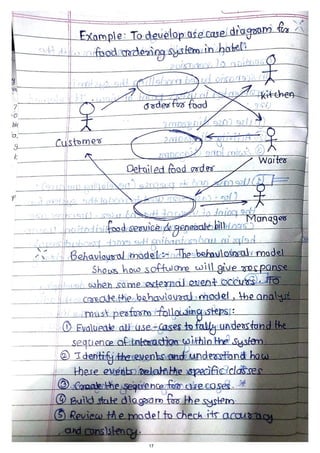 Example: To develop use case diagram for
food ordering system in hotel:
Kitchen
order for food
Customer
Waiter
Detailed food order
Manager
food service & generate bill
Behavioural model :- The behavioural model
shows how software will give response
when some external event occurs. To
create the behavioural model, the analyst
must perform following steps :
① Evaluate all use-cases to fully understand the
sequence of interaction within the system
② Identify the events and understand how
these events relate the specific classes
③ Create the sequence for use cases.
④ Build state diagram for the system
⑤ Review the model to check its accuracy
and consistency.
17